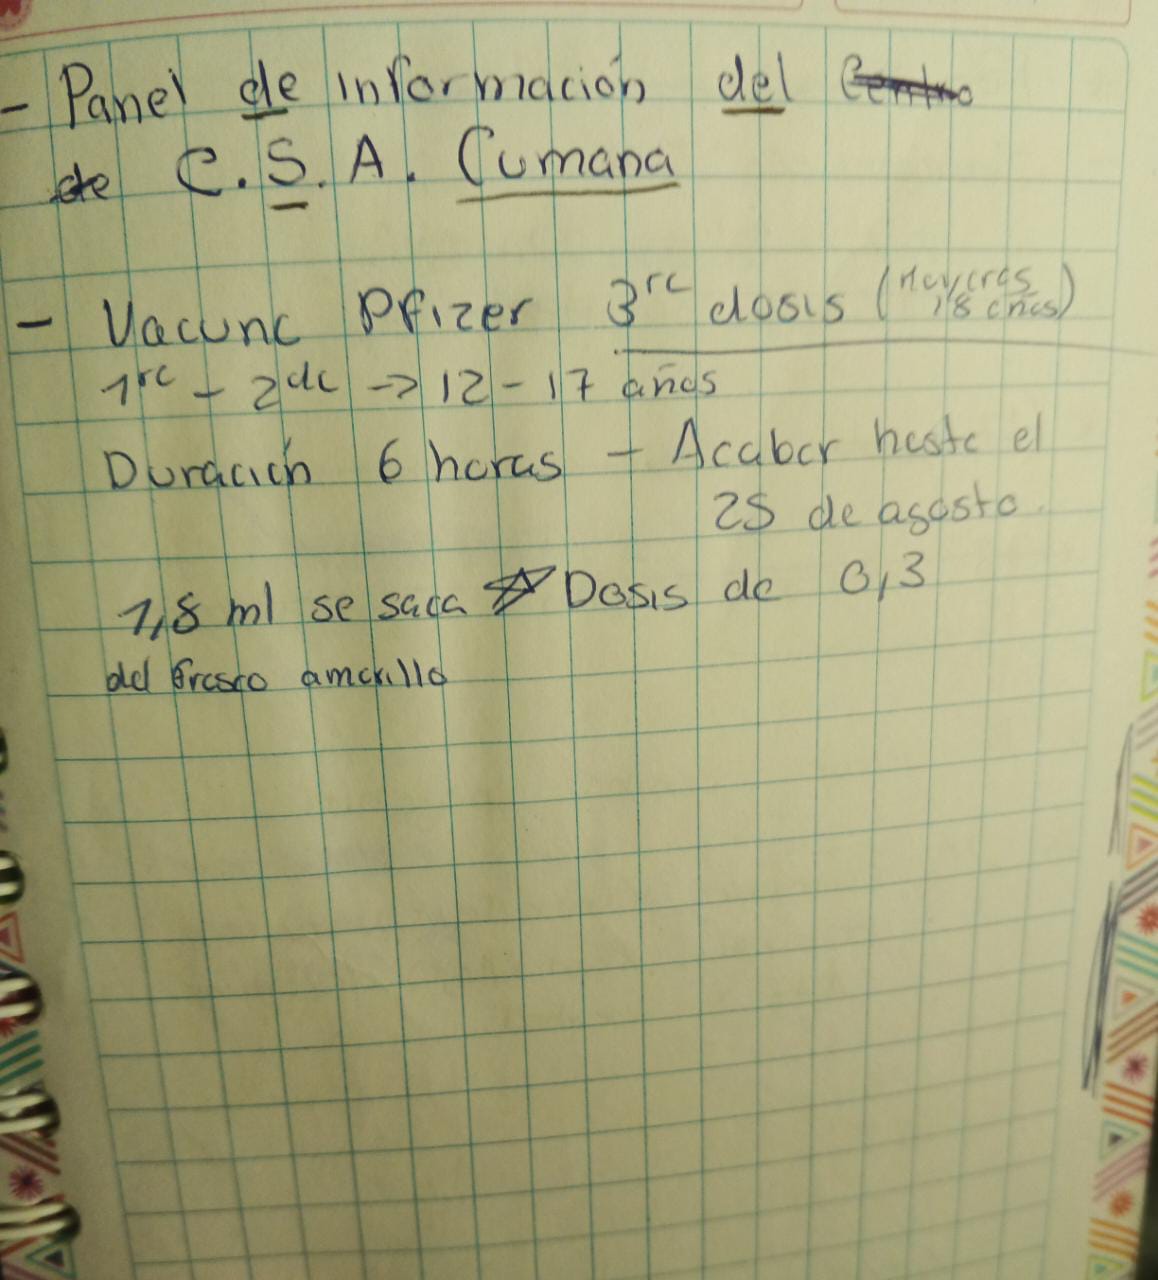 - Panel de información del Centro
de C.S.A. Cumana
- Vacuna Pfizer 3ra dosis (Mayores 18 años)
1ra - 2da -> 12 - 17 años
Duración 6 horas - Acabar hasta el
25 de agosto.
1,8 ml se saca ☆ Dosis de 0,3
del frasco amarillo